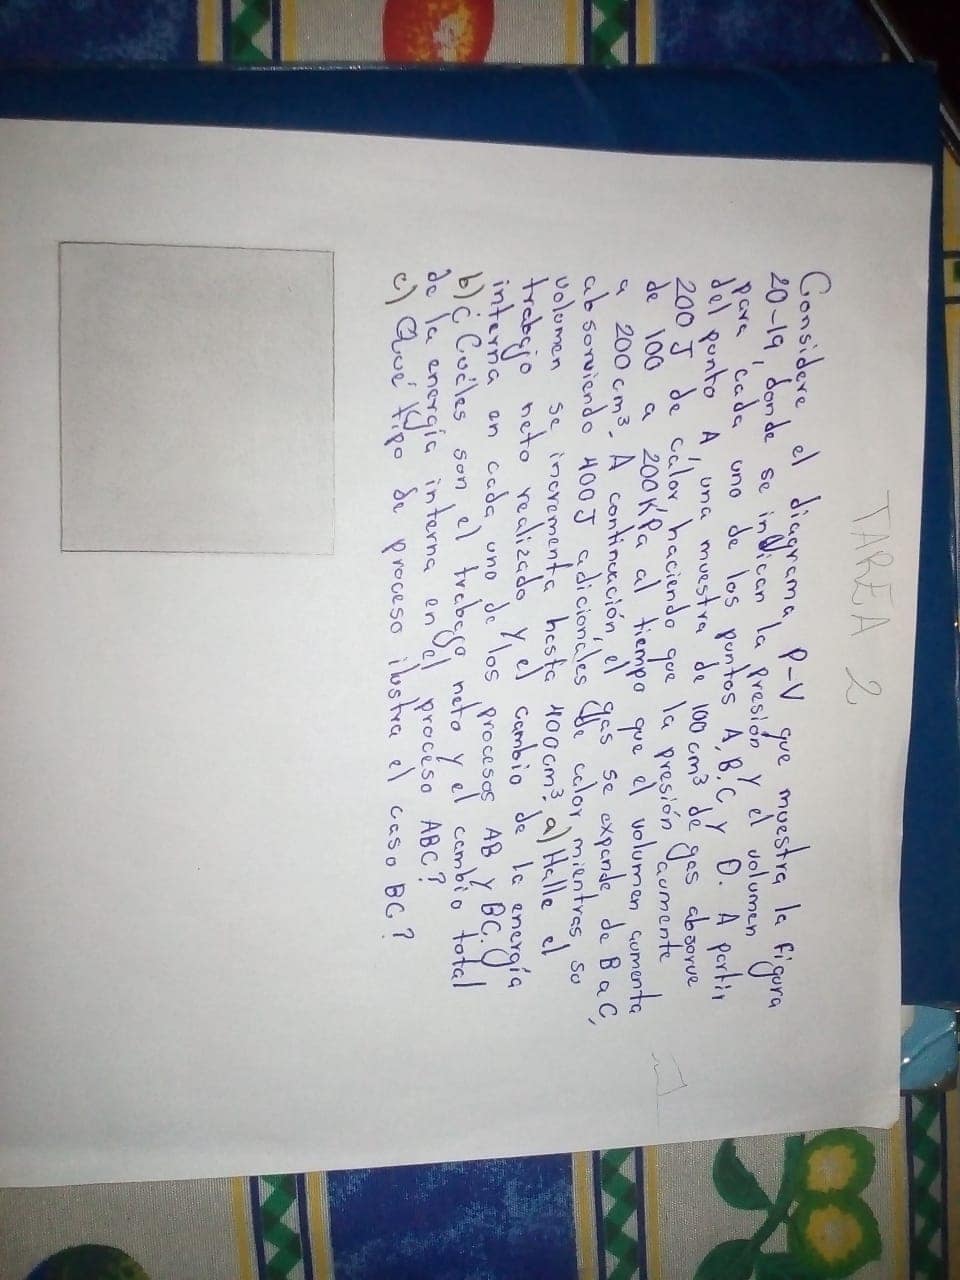 TAREA 2
Considere el diagrama P-V que muestra la figura
20-19, donde se indican la presión y el volumen
para cada uno de los puntos A, B, C y D. A partir
del punto A, una muestra de 100 cm³ de gas absorve
200 J de calor, haciendo que la presión aumente
de 100 a 200 KPa al tiempo que el volumen aumenta
a 200 cm³. A continuación, el gas se expande de B a C,
absorviendo 400 J adicionales de calor mientras su
volumen se incrementa hasta 400 cm³. a) Halle el
trabajo neto realizado y el cambio de la energía
interna en cada uno de los procesos AB y BC.
b) ¿Cuáles son el trabajo neto y el cambio total
de la energía interna en el proceso ABC?
c) Qué tipo de proceso ilustra el caso BC?